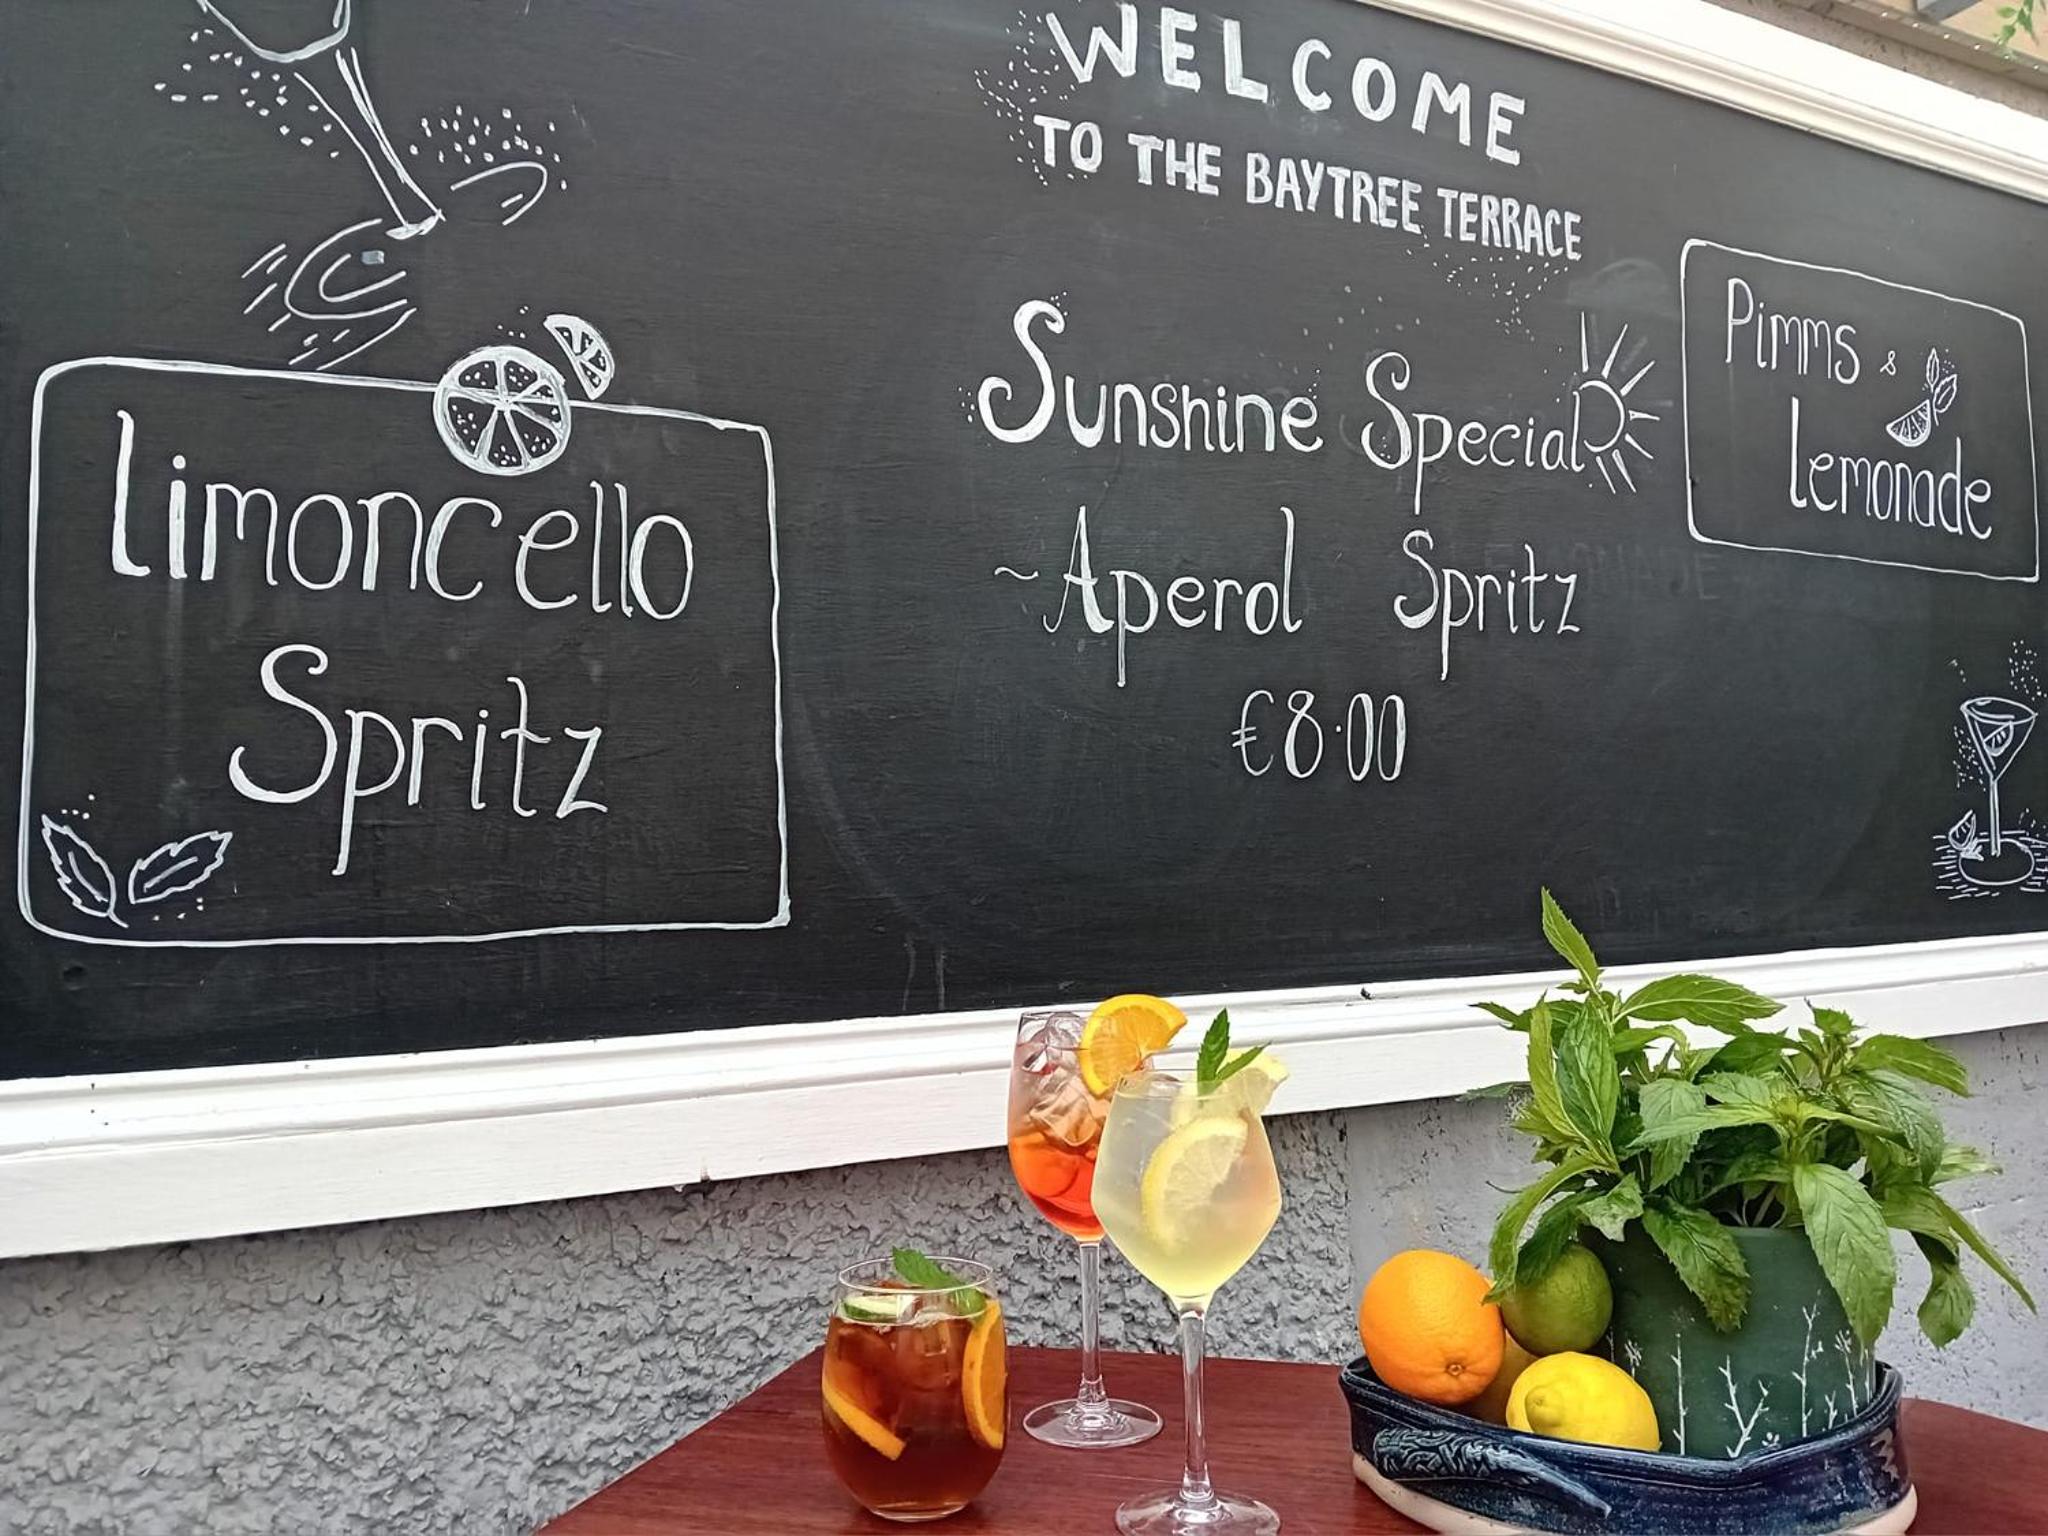 WELCOME
TO THE BAYTREE TERRACE
Sunshine Special
~Aperol Spritz
€8.00
Limoncello
Spritz
Pimms &
Lemonade